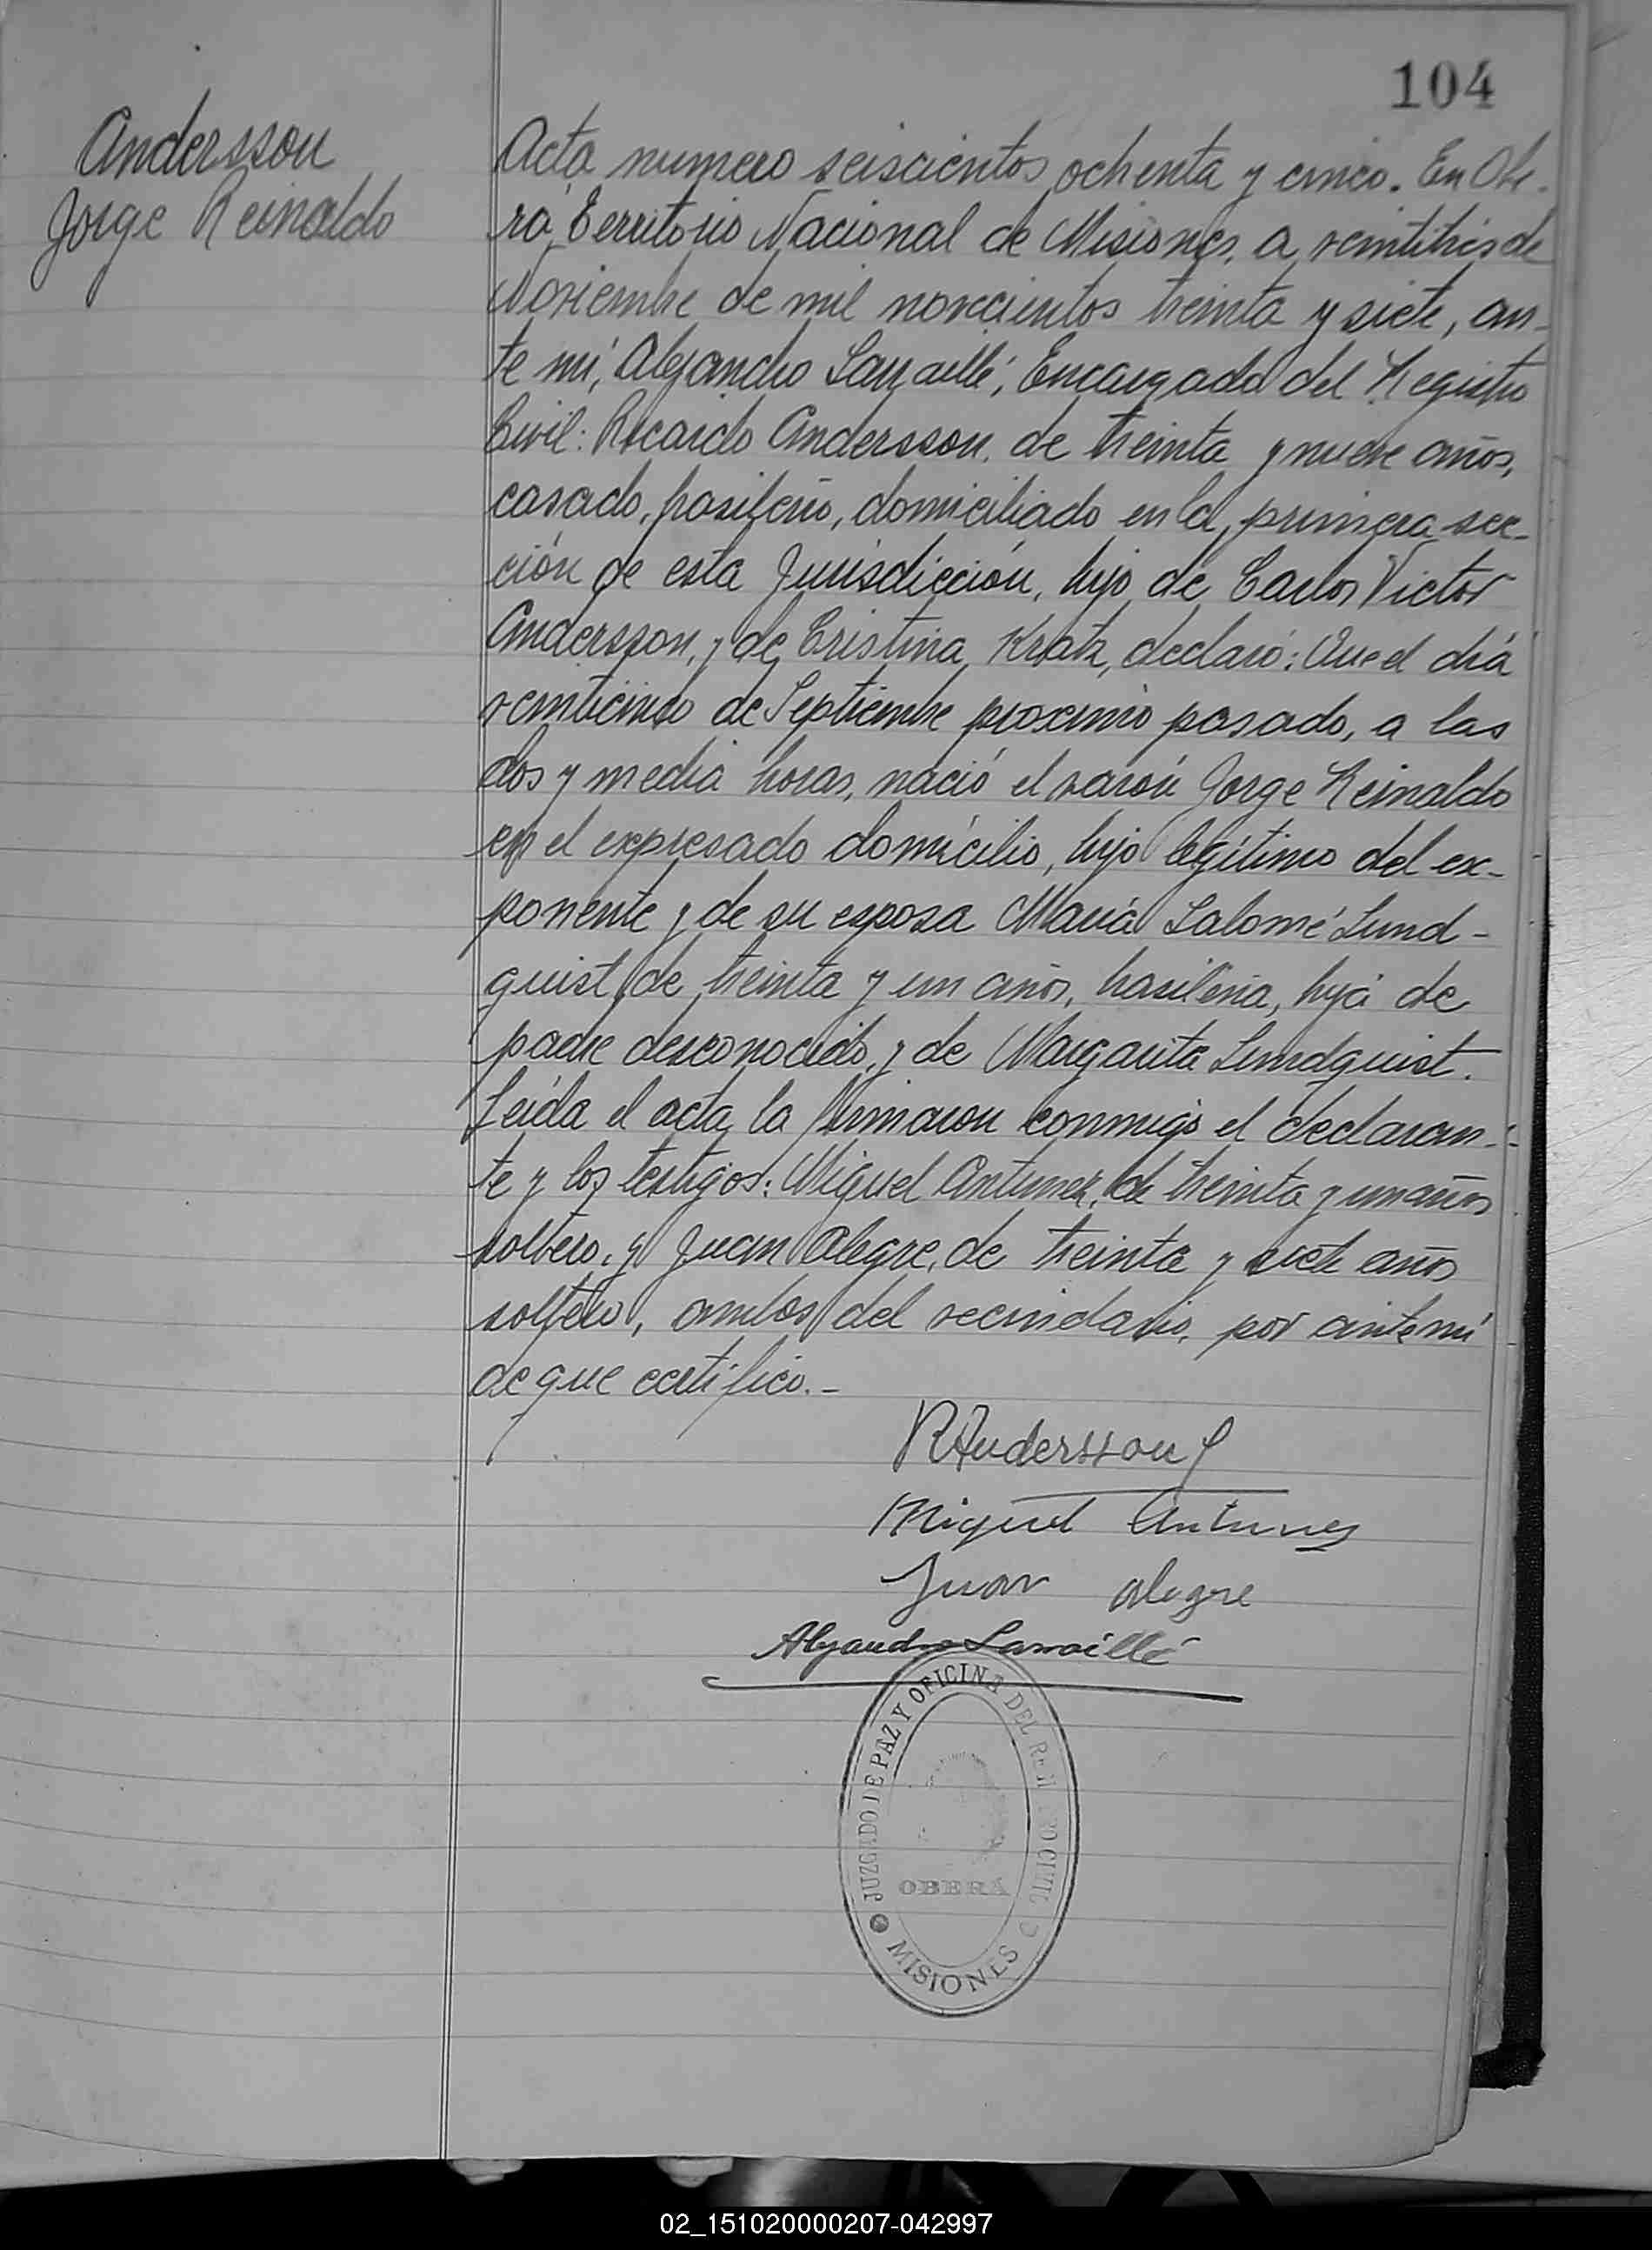 104
Andersson
Jorge Reinaldo
Acta numero seiscientos ochenta y cinco. En Obe-
rá, Territorio Nacional de Misiones, a veintitrés de
Noviembre de mil novecientos treinta y siete, an-
te mí, Alejandro Larraillé, Encargado del Registro
Civil: Ricardo Andersson, de treinta y nueve años,
casado, brasileño, domiciliado en la primera sec-
ción de esta Jurisdicción, hijo de Carlos Victor
Andersson, y de Cristina Kratz, declaró: Que el día
veinticinco de Septiembre proximo pasado, a las
dos y media horas, nació el varón Jorge Reinaldo
en el expresado domicilio, hijo legítimo del ex-
ponente y de su esposa María Salomé Lund-
quist, de treinta y un años, brasileña, hija de
padre desconocido, y de Margarita Lundquist.
Leída el acta la firmaron conmigo el declaran-
te y los testigos: Miguel Antunez, de treinta y un años
soltero, y Juan Alegre, de treinta y siete años
soltero, ambos del vecindario, por ante mí
de que certifico.-
RAndersson
Miguel Antunes
Juan Alegre
Alejandro Larraillé
JUZGADO DE PAZ Y OFICINA DEL REGISTRO CIVIL
OBERÁ
MISIONES
02_151020000207-042997